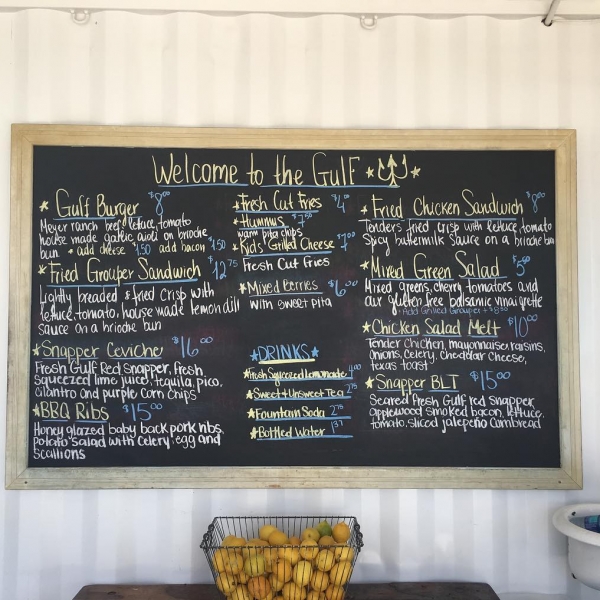 Welcome to the Gulf
Gulf Burger $8.00
Meyer ranch beef, lettuce, tomato
house made garlic aioli on brioche
bun + add cheese $1.50 add bacon $1.50
Fried Grouper Sandwich $12.75
Lightly breaded & fried crisp with
lettuce, tomato, house made lemon dill
sauce on a brioche bun
Snapper Ceviche $16.00
Fresh Gulf Red snapper, fresh
squeezed lime juice, tequila, pico,
cilantro and purple corn chips
BBQ Ribs $15.00
Honey glazed baby back pork ribs,
potato salad with celery, egg and
scallions
Fresh Cut Fries $4.00
Hummus $7.50
warm pita chips
Kids Grilled Cheese $7.00
Fresh Cut Fries
Mixed Berries $6.00
with sweet pita
DRINKS
Fresh Squeezed Lemonade 4.00
Sweet & Unsweet Tea 2.75
Fountain Soda 2.75
Bottled Water
Fried Chicken Sandwich $8.00
Tenders fried crisp with lettuce, tomato
Spicy buttermilk sauce on a brioche bun
Mixed Green Salad $5.00
Mixed greens, cherry tomatoes and
our gluten free balsamic vinaigrette
+ Add Grilled Grouper +
Chicken Salad Melt $10.00
Tender Chicken, mayonnaise, raisins,
onions, celery, cheddar cheese,
texas toast
Snapper BLT $15.00
Seared fresh Gulf red snapper
applewood smoked bacon, lettuce,
tomato, sliced jalapeño Cornbread